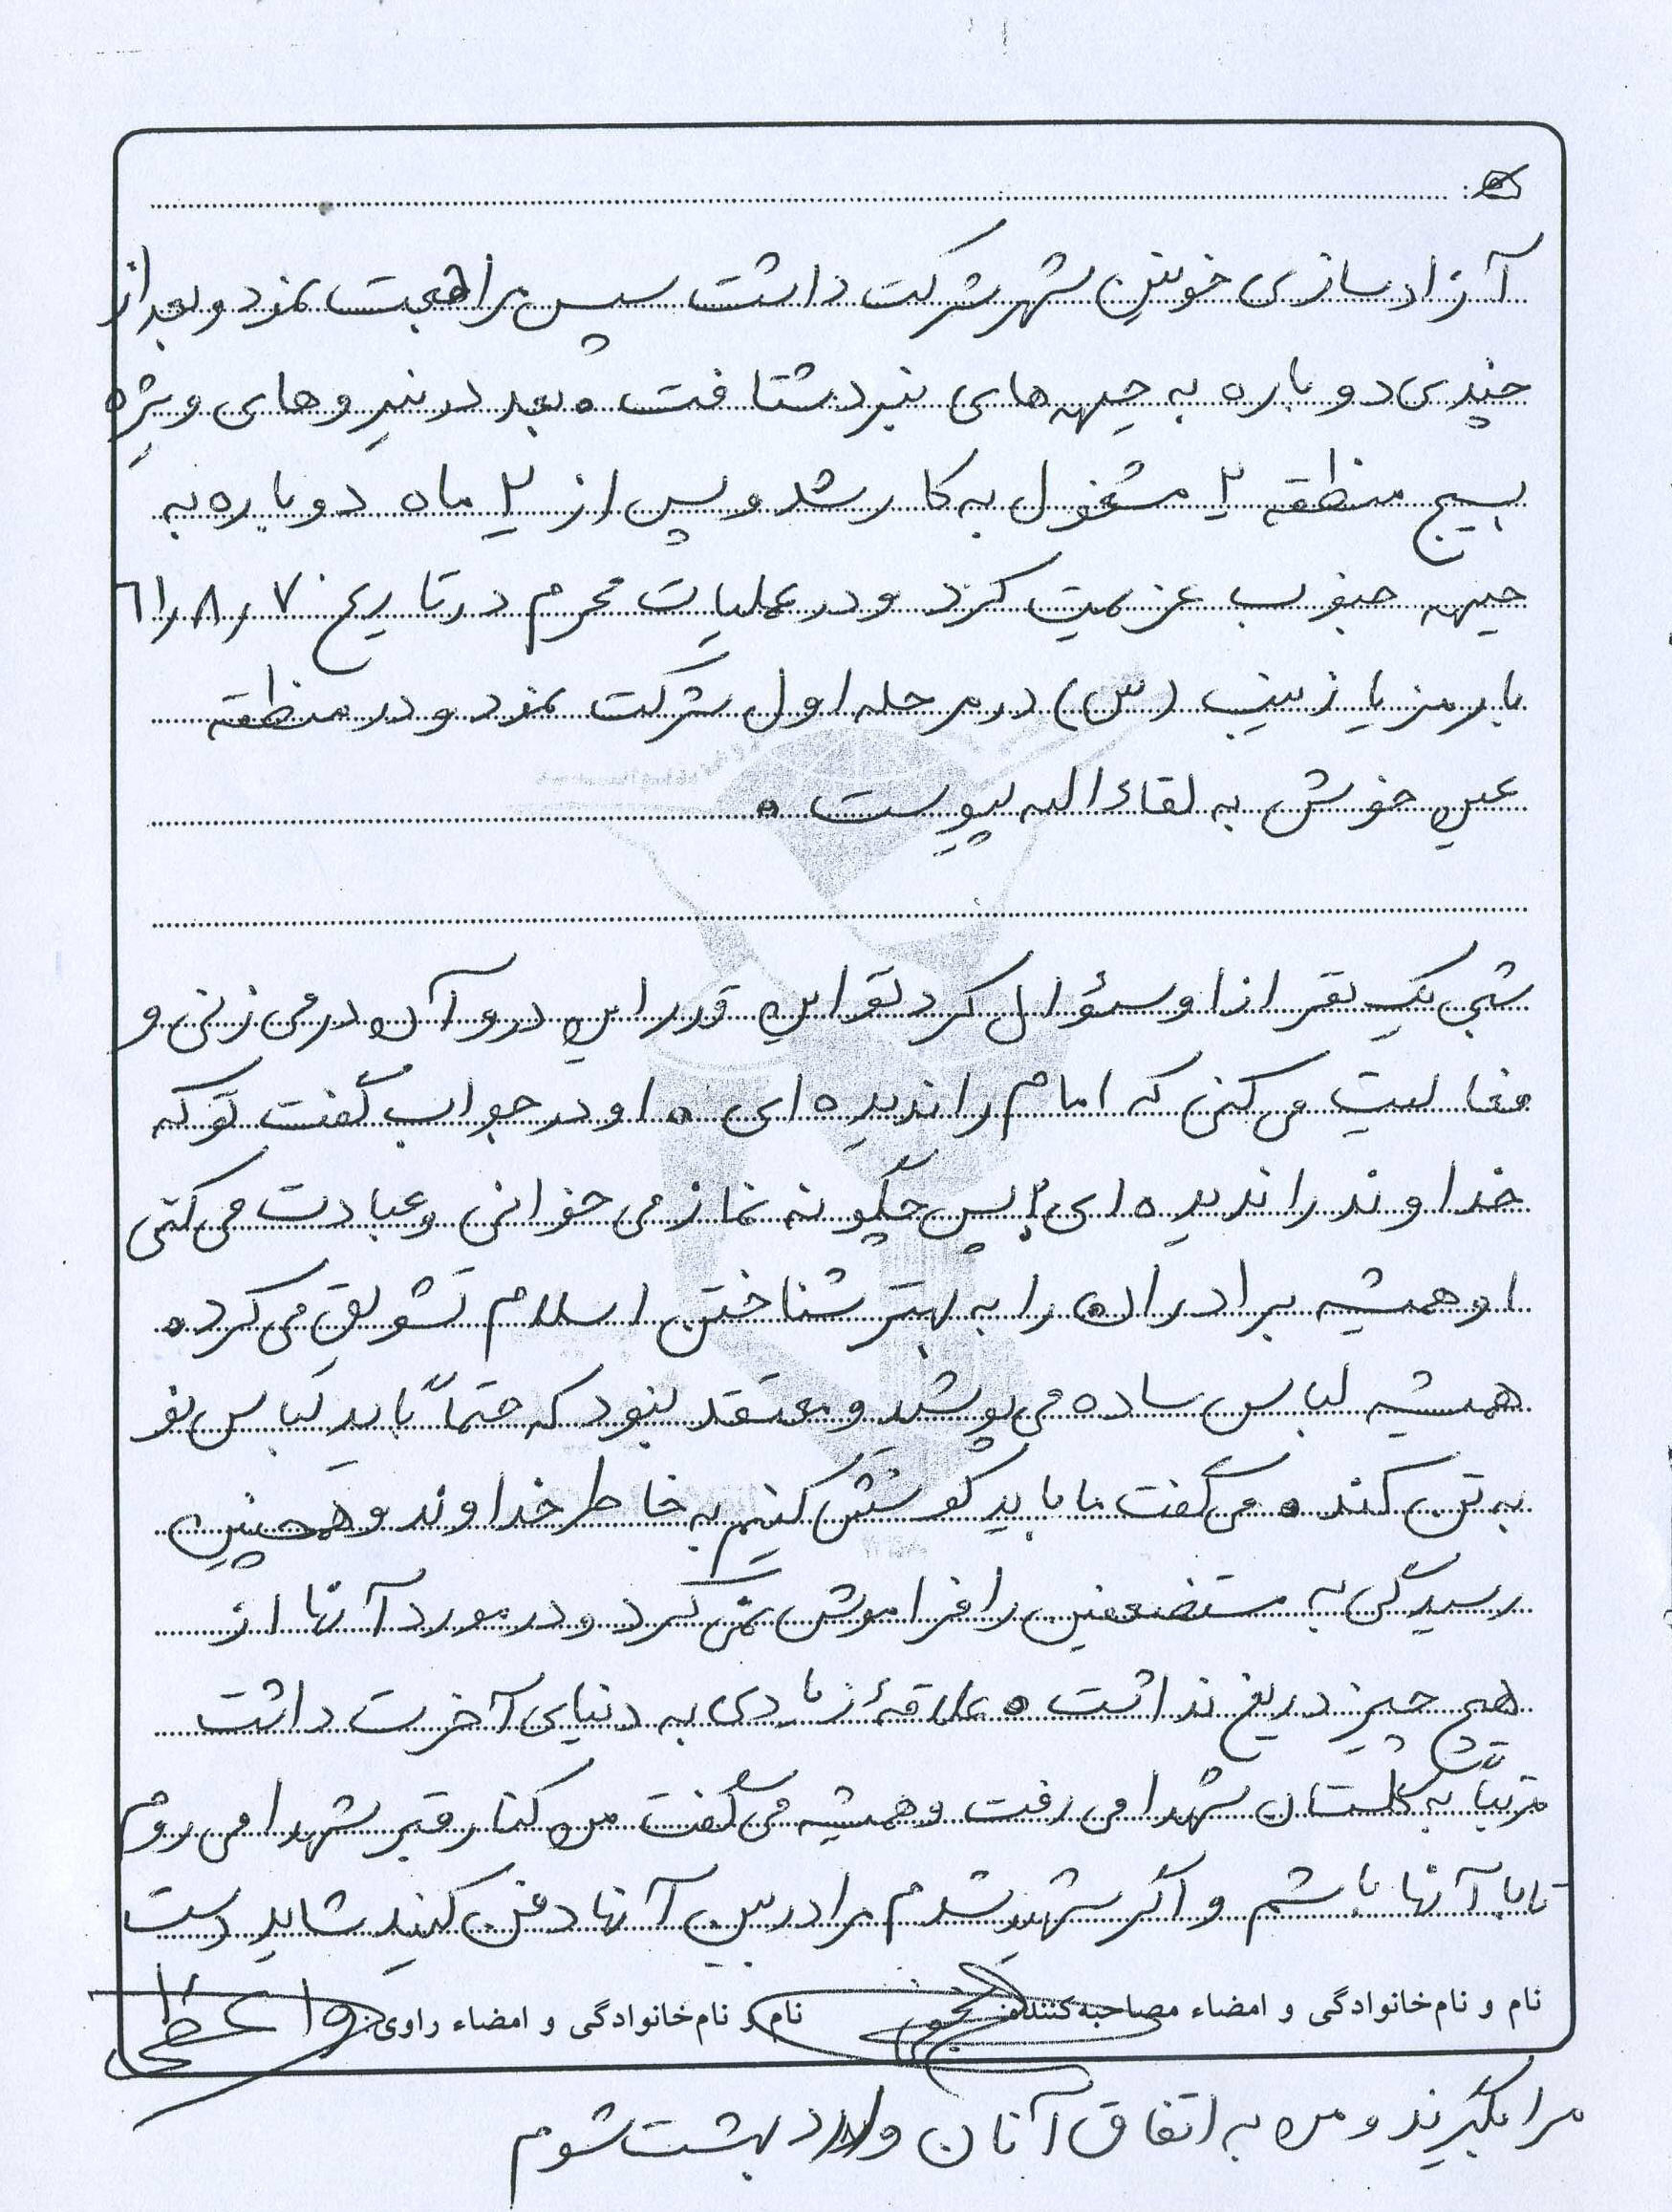 آزادسازی خونین شهر شرکت داشت سپس مراجعت نمود و بعد از
چندی دوباره به جبهه های نبرد شتافت . بعد در نیروهای ویژه
بسیج منطقه ۲ مشغول به کار شد و پس از ۲ ماه دوباره به
جبهه جنوب عزیمت کرد و در عملیات محرم در تاریخ ۷ ر ۸ ر ۶۱
با رمز یا زینب (س) در مرحله اول شرکت نمود و در منطقه
عین خوش به لقاء الله پیوست .
شبی یک نفر از او سئوال کرد تو این قدر این در و آن در می زنی و
فعالیت می کنی که امام را ندیده ای . او در جواب گفت تو که
خداوند را ندیده ای ! پس چگونه نماز می خوانی و عبادت می کنی
او همیشه برادران را به بهتر شناختن اسلام تشویق می کرد .
همیشه لباس ساده می پوشید و معتقد نبود که حتماً باید لباس نو
به تن کند . می گفت ما باید کوشش کنیم به خاطر خداوند و همچنین
رسیدگی به مستضعفین را فراموش نمی کرد و در مورد آنها از
هیچ چیز دریغ نداشت . علاقهٔ زیادی به دنیای آخرت داشت
مرتباً به گلستان شهدا می رفت و همیشه می گفت من کنار قبر شهدا می روم
تا با آنها باشم و اگر شهید شدم مرا در بین آنها دفن کنید شاید دست
نام و نام خانوادگی و امضاء مصاحبه کننده: نام و نام خانوادگی و امضاء راوی: واعظی
مرا بگیرند و من به اتفاق آنان وارد بهشت شوم